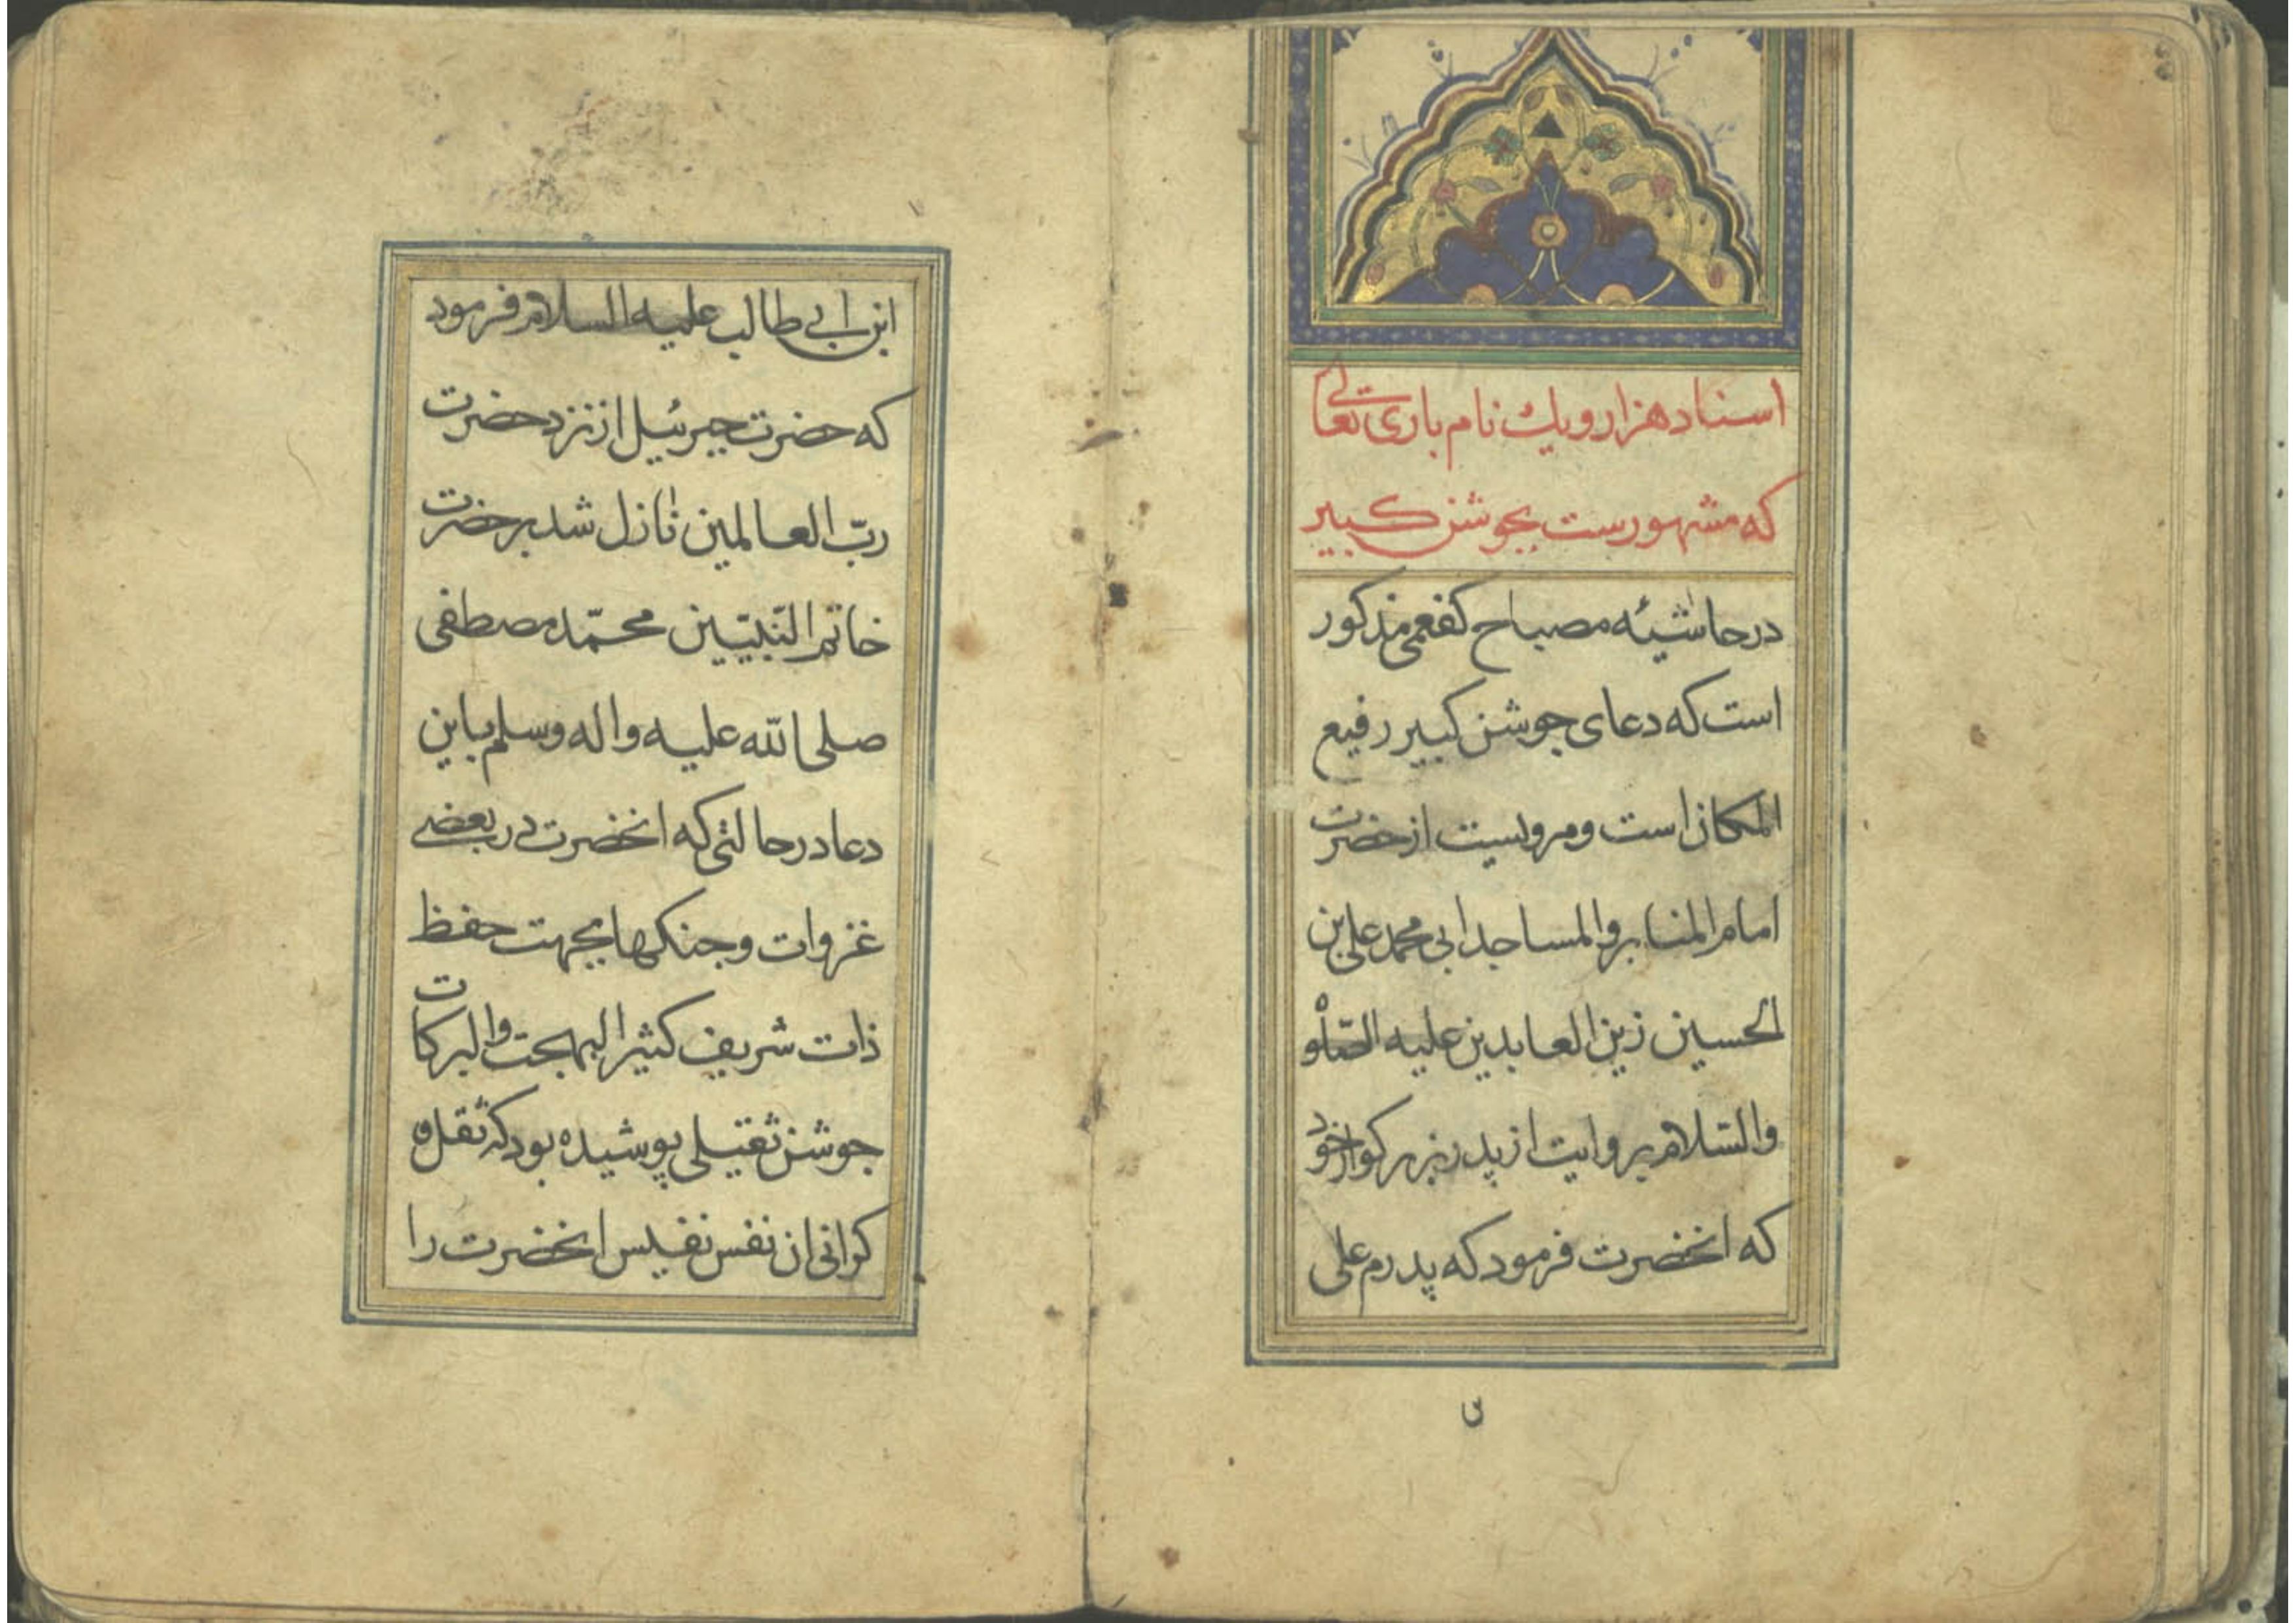 اسناد هزار و یك نام باری تعالی
که مشهورست بجوشن کبیر
در حاشیهٔ مصباح کفعمی مذکور
است که دعای جوشن کبیر رفیع
المکان است و مرویست از حضرت
امام المنابر والمساجد ابی محمد علی بن
الحسین زین العابدین علیه الصلوة
والسّلام بروایت از پدر بزرکوار خود
که انحضرت فرمود که پدرم علی
ابن ابی طالب علیه السلام فرمود
که حضرت جبرئیل از نزد حضرت
ربّ العالمین نازل شد بر حضرت
خاتم النّبیّین محمّد مصطفی
صلی الله علیه واله وسلم باین
دعا در حالتی که انحضرت در بعضی
غزوات و جنکها بجهت حفظ
ذات شریف کثیر البهجت والبرکات
جوشن ثقیلی پوشیده بود که ثقل و
کرانی ان نفس نفیس انحضرت را